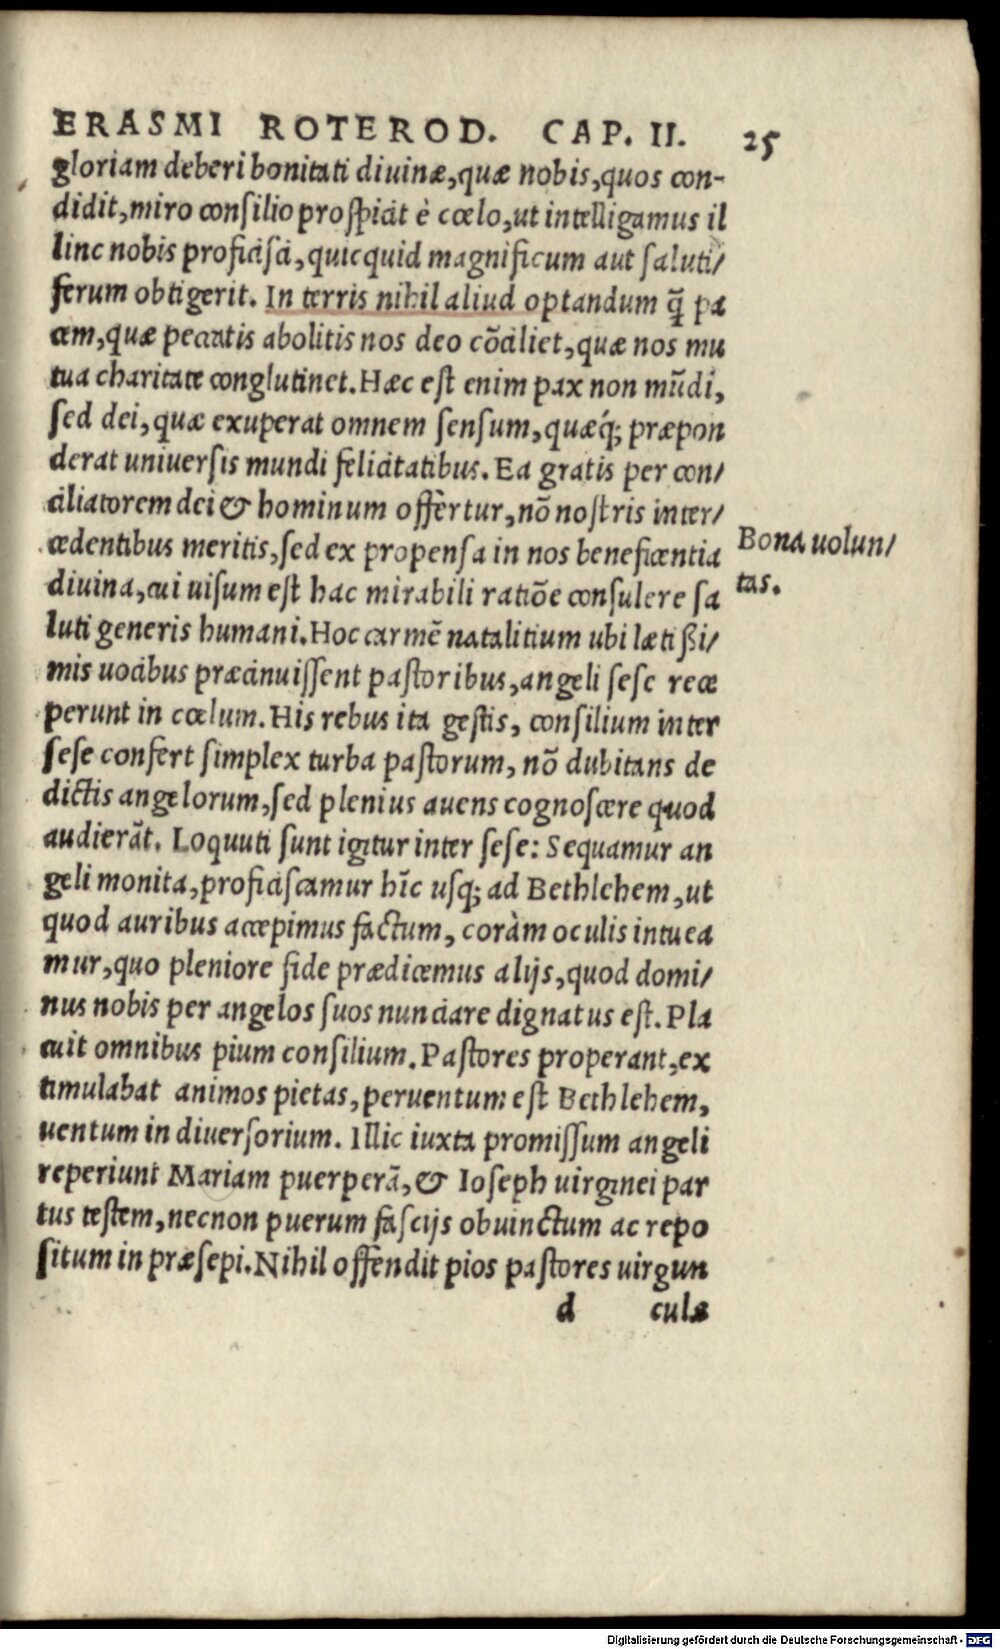 ERASMI ROTEROD. CAP. II. 25
gloriam deberi bonitati diuinæ, quæ nobis, quos con-
didit, miro consilio prospicit è cœlo, ut intelligamus il
linc nobis proficisci, quicquid magnificum aut saluti/
ferum obtigerit. In terris nihil aliud optandum q̃ pa
cem, quæ peccatis abolitis nos deo cõciliet, quæ nos mu
tua charitate conglutinet. Hæc est enim pax non mũdi,
sed dei, quæ exuperat omnem sensum, quæq́; præpon
derat uniuersis mundi felicitatibus. Ea gratis per con/
ciliatorem dei & hominum offertur, nõ nostris inter/
cedentibus meritis, sed ex propensa in nos beneficentia
diuina, cui uisum est hac mirabili ratiõe consulere sa
luti generis humani. Hoc carmẽ natalitium ubi lætißi/
mis uocibus præcinuissent pastoribus, angeli sese rece
perunt in cœlum. His rebus ita gestis, consilium inter
sese confert simplex turba pastorum, nõ dubitans de
dictis angelorum, sed plenius auens cognoscere quod
audierãt. Loquuti sunt igitur inter sese: Sequamur an
geli monita, proficiscamur hĩc usq; ad Bethlehem, ut
quod auribus accepimus factum, coràm oculis intuea
mur, quo pleniore fide prædicemus alijs, quod domi/
nus nobis per angelos suos nunciare dignatus est. Pla
cuit omnibus pium consilium. Pastores properant, ex
timulabat animos pietas, peruentum est Bethlehem,
uentum in diuersorium. Illic iuxta promissum angeli
reperiunt Mariam puerperã, & Ioseph uirginei par
tus testem, necnon puerum fascijs obuinctum ac repo
situm in præsepi. Nihil offendit pios pastores uirgun
d culæ
Bona uolun/
tas.
Digitalisierung gefördert durch die Deutsche Forschungsgemeinschaft - DFG